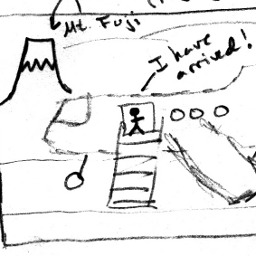 Mt. Fuji
I have
arrived!